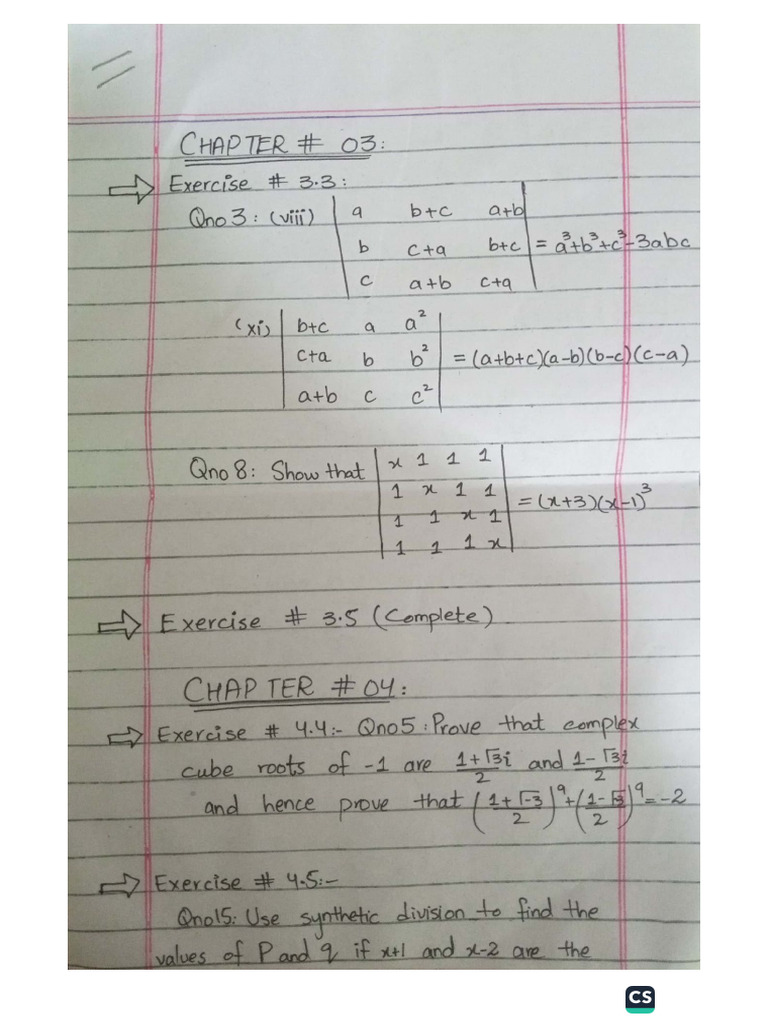 CHAPTER # 03:
Exercise # 3.3:
Qno3: (viii) | a b+c a+b |
| b c+a b+c | = a³+b³+c³-3abc
| c a+b c+a |
(xi) | b+c a a² |
| c+a b b² | = (a+b+c)(a-b)(b-c)(c-a)
| a+b c c² |
Qno 8: Show that | x 1 1 1 |
| 1 x 1 1 | = (x+3)(x-1)³
| 1 1 x 1 |
| 1 1 1 x |
⇒ Exercise # 3.5 (Complete)
CHAPTER # 04:
⇒ Exercise # 4.4:- Qno5: Prove that complex
cube roots of -1 are (1+√3i)/2 and (1-√3i)/2
and hence prove that ((1+√-3)/2)⁹+((1-√-3)/2)⁹=-2
⇒ Exercise # 4.5:-
Qno15: Use synthetic division to find the
values of P and q if x+1 and x-2 are the
CS